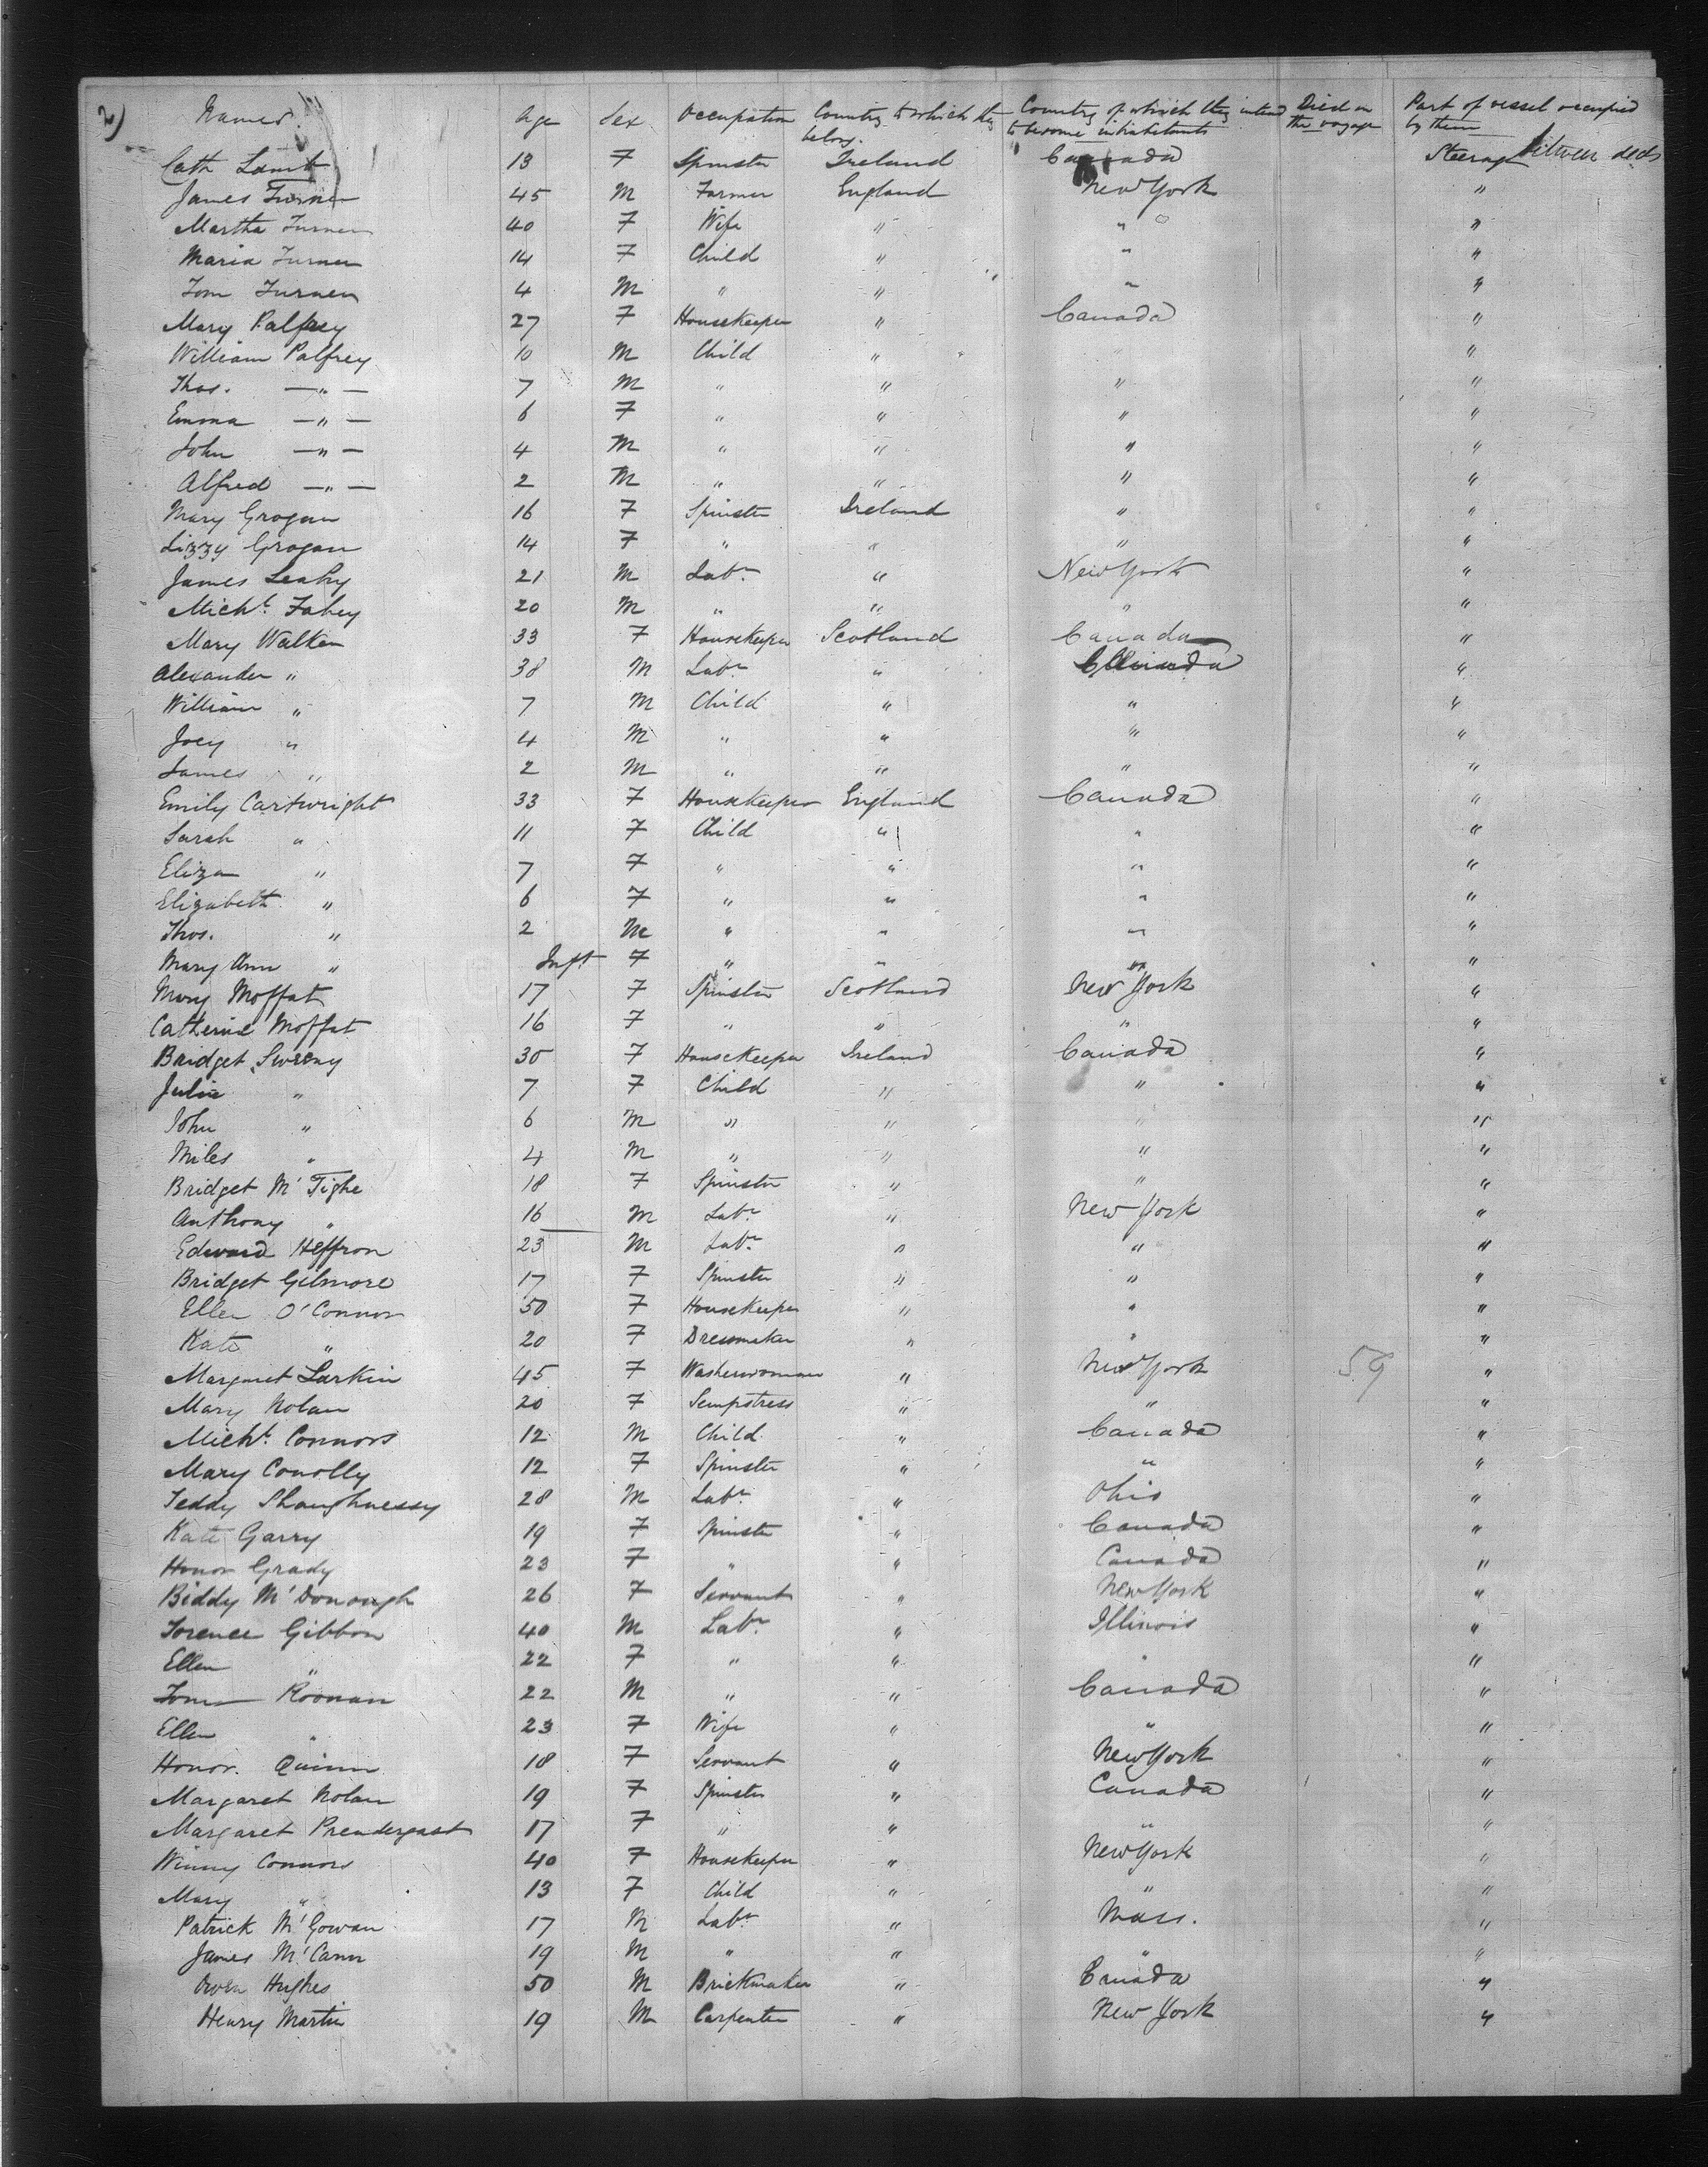 2)
Names. Age Sex Occupation Country to which they belong. Country of which they intend to become inhabitants Died on the voyage Part of vessel occupied by them
Cath Lamb 13 F Spinster Ireland Canada Steerage between decks
James Turner 45 M Farmer England New York "
Martha Turner 40 F Wife " " "
Maria Turner 14 F Child " " "
Tom Turner 4 M " " " "
Mary Palfrey 27 F Housekeeper " Canada "
William Palfrey 10 M Child " "
Thos. — " — 7 M " " " "
Emma — " — 6 F " " " "
John — " — 4 M " " " "
Alfred — " — 2 M " " " "
Mary Grogan 16 F Spinster Ireland " "
Lizzy Grogan 14 F " " " "
James Leahy 21 M Labr " New York "
Michl. Fahey 20 M " " " "
Mary Walker 33 F Housekeeper Scotland Canada "
Alexander " 38 M Labr " Canada "
William " 7 M Child " " "
Joey " 4 M " " " "
James " 2 M " " " "
Emily Cartwright 33 F Housekeeper England Canada "
Sarah " 11 F Child " " "
Eliza " 7 F " " " "
Elizabeth " 6 F " " " "
Thos. " 2 M " " " "
Mary Ann " Inft F " " " "
Mary Moffat 17 F Spinster Scotland New York "
Catherine Moffat 16 F " " " "
Bridget Sweeny 30 F Housekeeper Ireland Canada "
Julia " 7 F Child " " "
John " 6 M " " " "
Miles " 4 M " " " "
Bridget M'Tighe 18 F Spinster " " "
Anthony " 16 M Labr " New York "
Edward Heffron 23 M Labr " " "
Bridget Gilmore 17 F Spinster " " "
Ellen O'Connor 50 F Housekeeper " " "
Kate " 20 F Dressmaker " " "
Margaret Larkin 45 F Washerwoman " New York 59 "
Mary Nolan 20 F Sempstress " " "
Michl. Connors 12 M Child " Canada "
Mary Conolly 12 F Spinster " " "
Teddy Shaughnessy 28 M Labr " Ohio "
Kate Garry 19 F Spinster " Canada "
Honor Grady 23 F " " Canada "
Biddy M'Donough 26 F Servant " New York "
Gibbon 40 M Labr " Illinois "
Ellen " 22 F " " " "
Roonan 22 M " " Canada "
Ellen " 23 F Wife " " "
Honor. Quinn 18 F Servant " New York "
Margaret Nolan 19 F Spinster " Canada "
Margaret Prendergast 17 F " " " "
Winny Connors 40 F Housekeeper " New York "
Mary " 13 F Child " " "
Patrick M'Gowan 17 M Labr " Mass. "
James M'Cann 19 M " " " "
Owen Hughes 50 M Brickmaker " Canada "
Henry Martin 19 M Carpenter " New York "